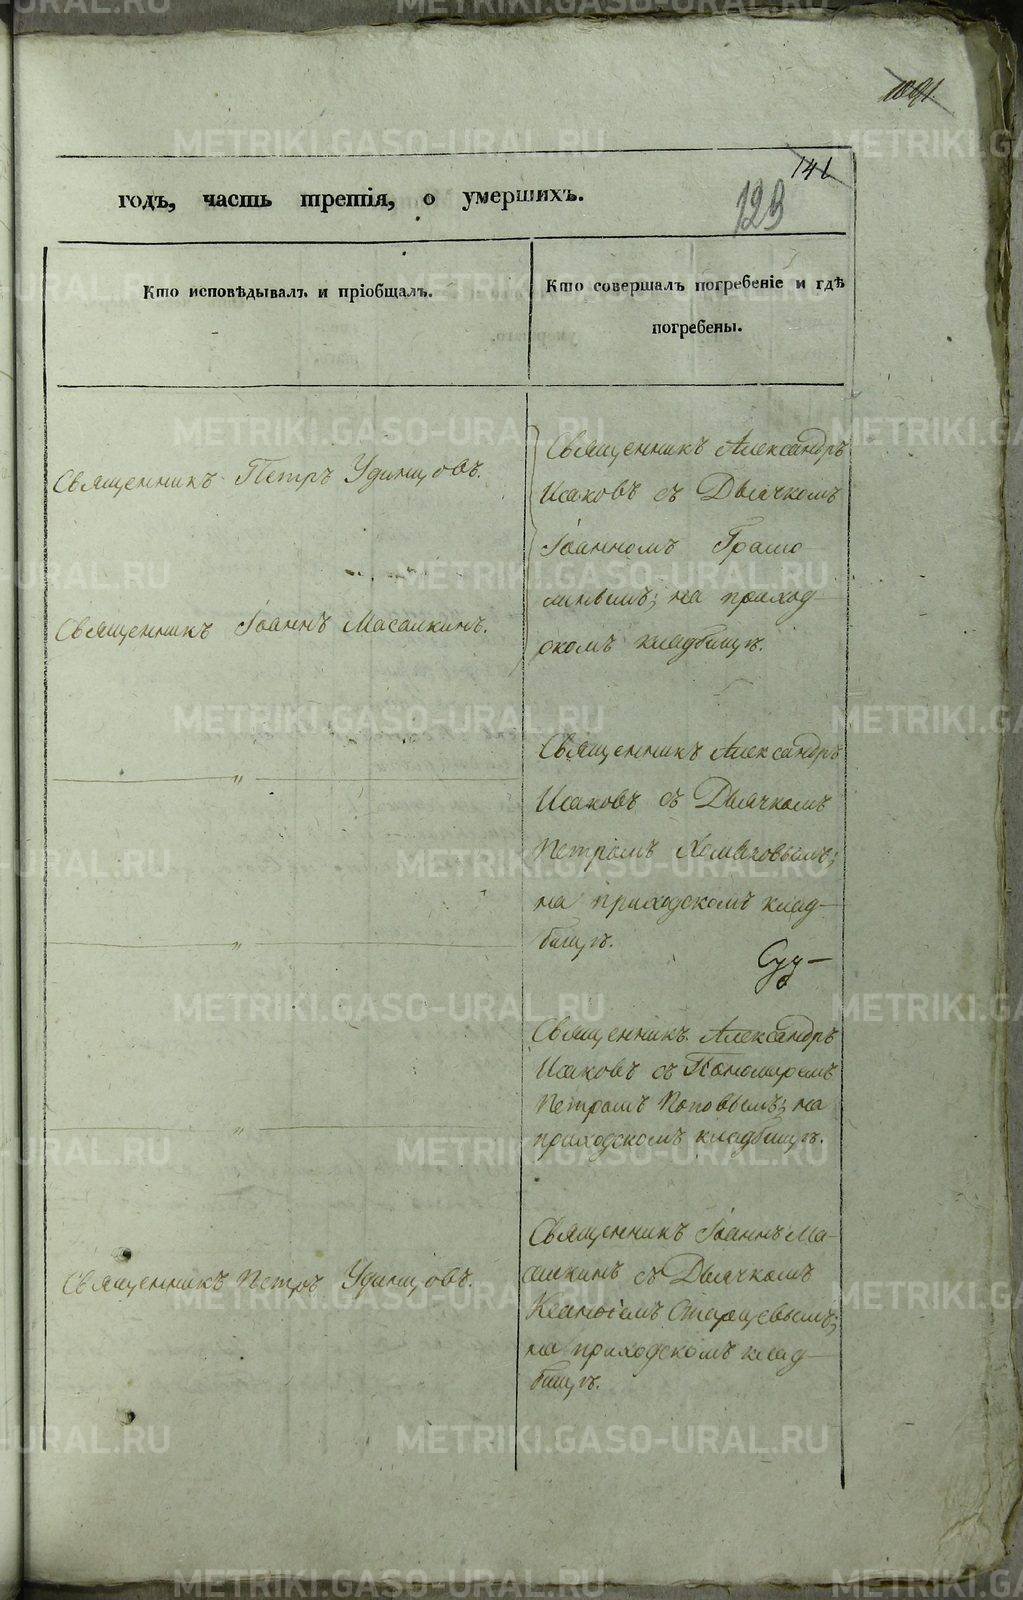 1091.
141
123
годъ, часть третія, о умершихъ.
Кто исповѣдывалъ и пріобщалъ.
Кто совершалъ погребеніе и гдѣ
погребены.
Священникъ Петръ Удинцовъ.
Священникъ Іоаннъ Масалкинъ.
"
"
"
Священникъ Петръ Удинцовъ.
Священникъ Александръ
Исаковъ съ Дьячкомъ
Іоанномъ
на приход-
скомъ кладбищѣ.
Священникъ Александръ
Исаковъ съ Дьячкомъ
Петромъ Хомяковымъ;
на приходскомъ клад-
бищѣ.
Священникъ Александръ
Исаковъ съ Пономаремъ
Петромъ Поповымъ; на
приходскомъ кладбищѣ.
Священникъ Іоаннъ Ма-
салкинъ съ Дьячкомъ
Старцевымъ;
на приходскомъ клад-
бищѣ.
METRIKI.GASO-URAL.RU